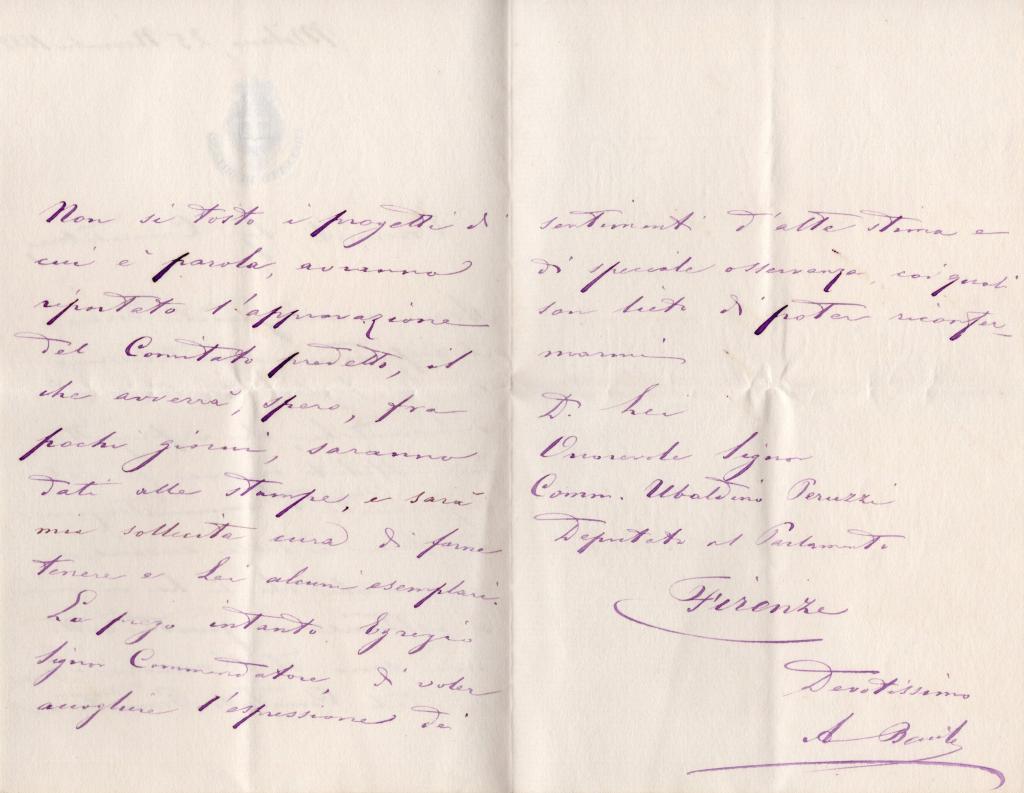 Non si tosto i progetti di
cui è parola, avranno
riportato l'approvazione
del Comitato predetto, il
che avverrà, spero, fra
pochi giorni, saranno
dati alle stampe, e sarà
mia sollecita cura di farne
tenere a Lei alcuni esemplari.
La prego intanto Egregio
Signor Commendatore, di voler
accogliere l'espressione dei
sentimenti d'alta stima e
di speciale osservanza, coi quali
son lieto di poter riconfer-
marmi
Di Lei
Onorevole Signor
Comm. Ubaldino Peruzzi
Deputato al Parlamento
Firenze
Devotissimo
A